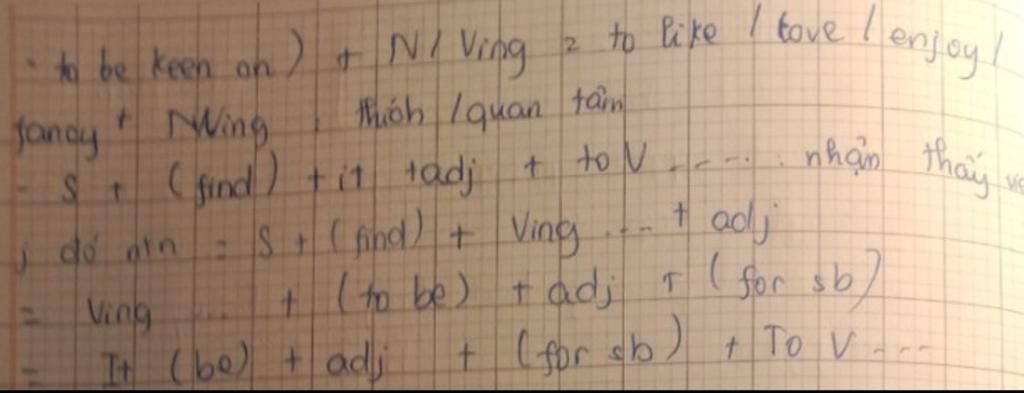 - to be keen on) + N/ Ving = to like / love / enjoy/
fancy + N/Ving thích /quan tâm
- S + (find) + it + adj + to V ..... nhận thấy
đó ntn = S + (find) + Ving .... + adj
= Ving ... + (to be) + adj + (for sb)
= It (be) + adj + (for sb) + To V ...